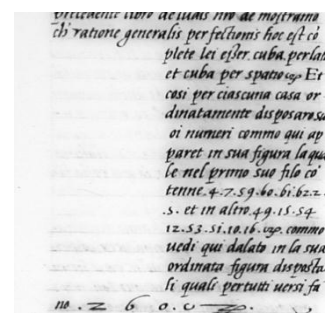 precedente libro de luais nro de mostramo
ch ratione generalis perfectionis hoc est cō
plete lei esser cuba. perlan
et cuba per spatio Et
cosi per ciascuna casa or
dinatamente disposaro su
oi numeri commo qui ap
paret in sua figura laqua
le nel primo suo filo cō
tenne .4.7.59.60.61.62.2.
.5. et in altro .49.15.54
12.53.51.10.16. commo
uedi qui dalato in la sua
ordinata figura disposta
li quali pertutti uersi fa
no .2 6 0.